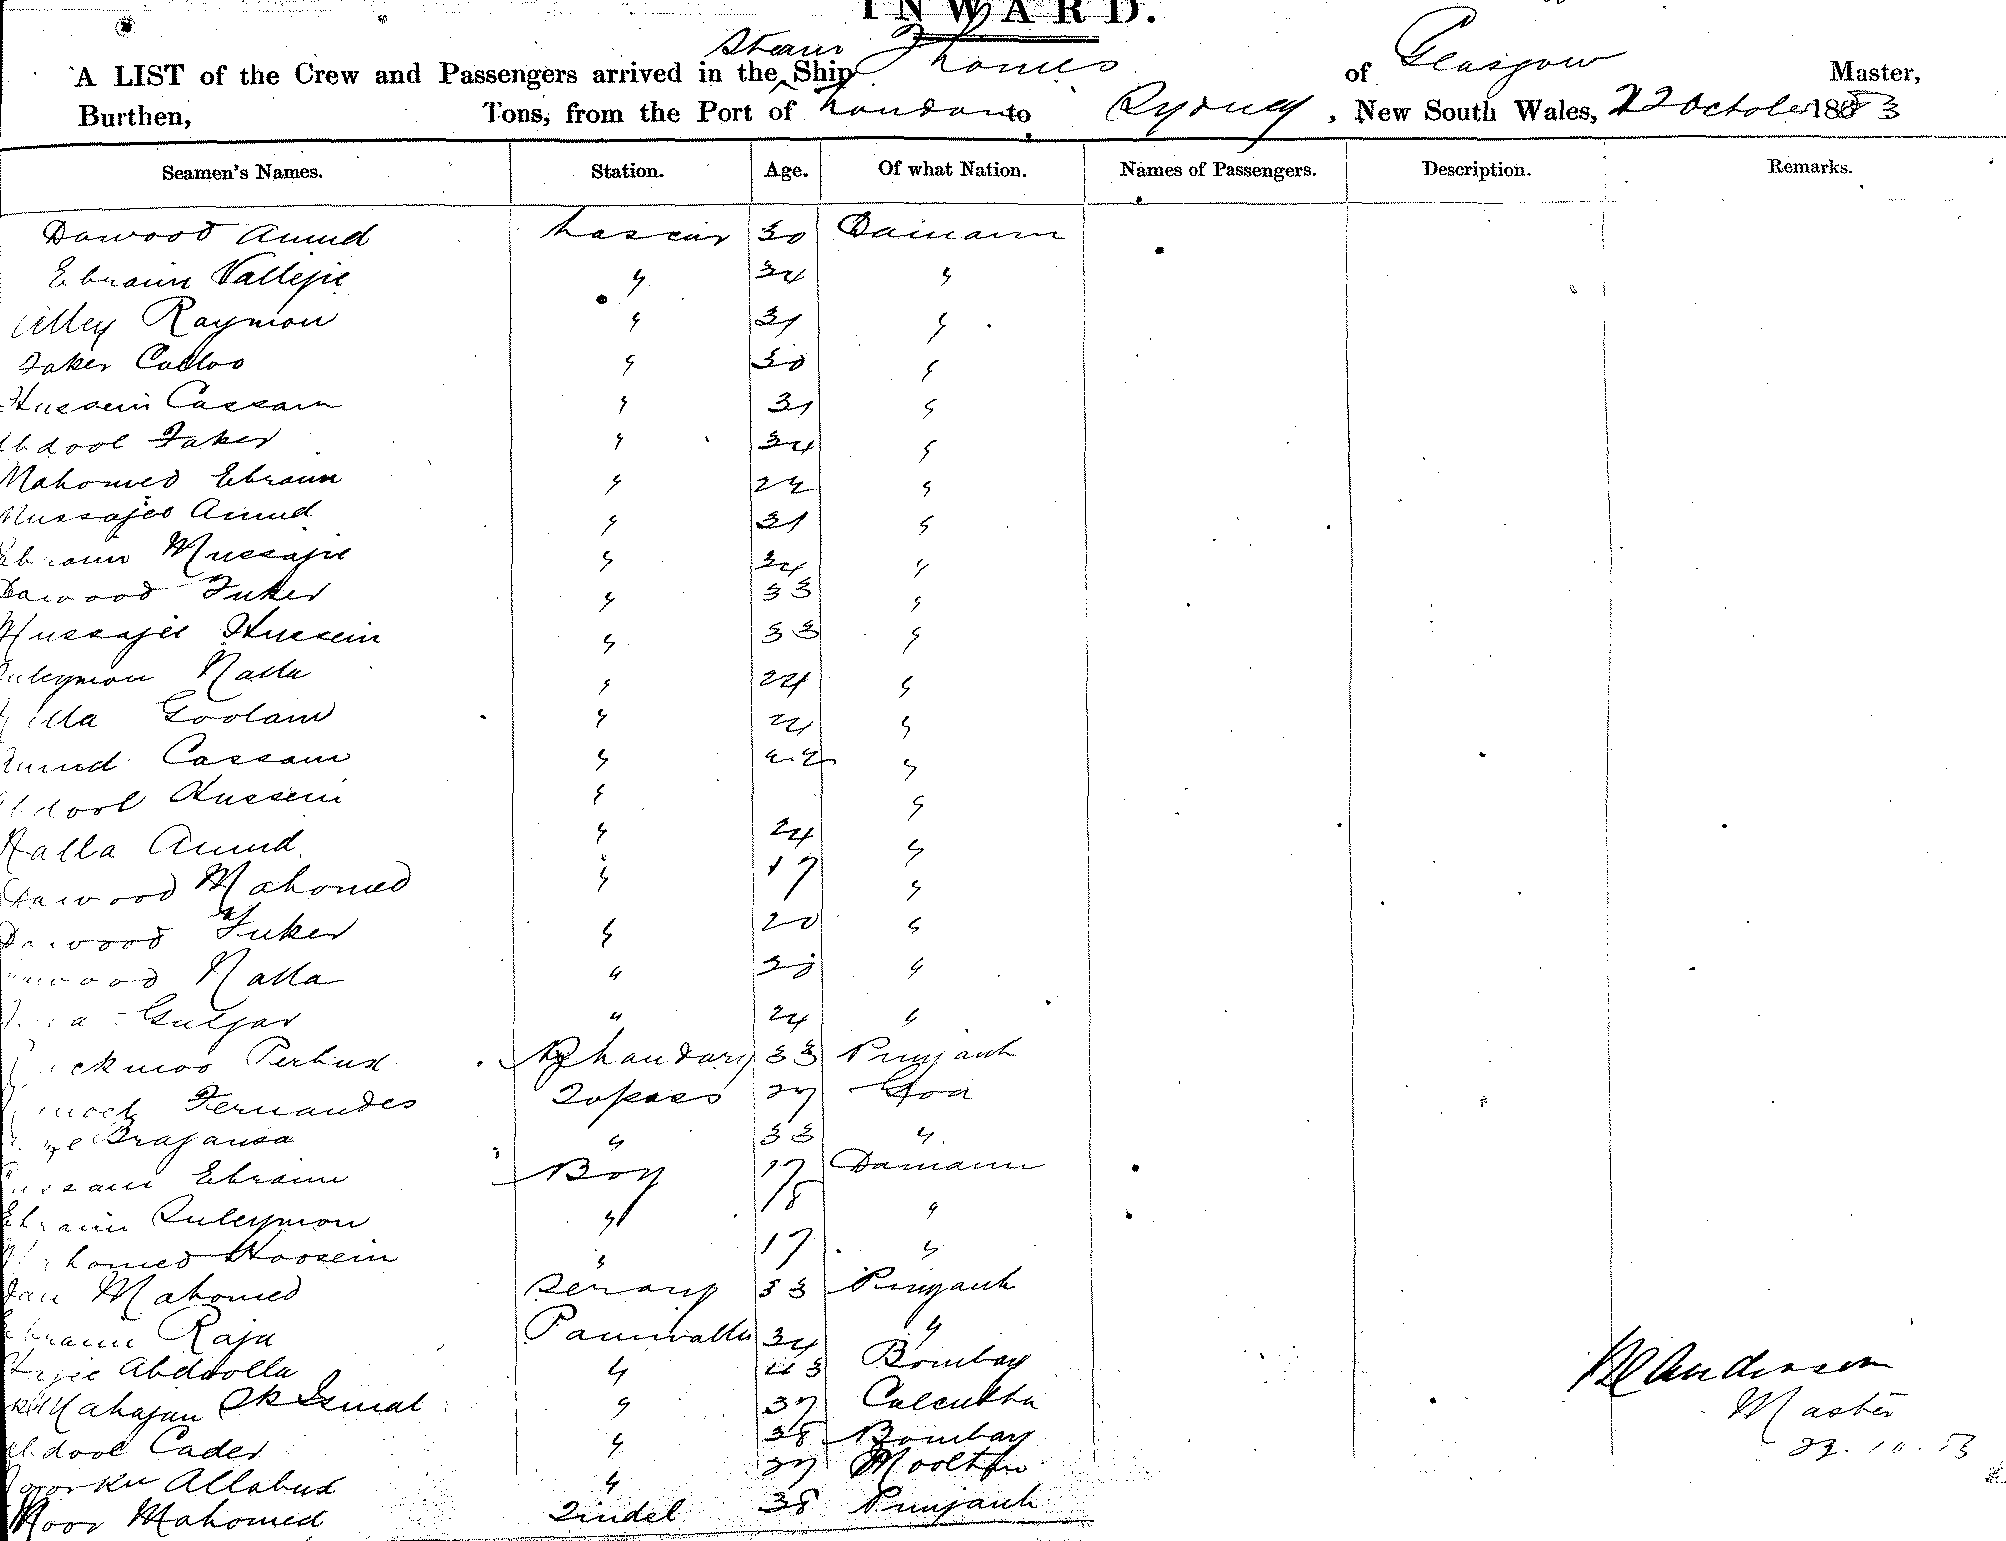 INWARD.
A LIST of the Crew and Passengers arrived in the Steam Ship Thames of Glasgow Master,
Burthen, Tons, from the Port of London to Sydney, New South Wales, 22 October 1883
Seamen's Names. Station. Age. Of what Nation. Names of Passengers. Description. Remarks.
Dawood Amud Lascar 30 Damaun
Ebraim Vallejie " 34 "
Raymon " 31 "
Faker Cadoo " 30 "
Hussein Cassam " 31 "
Abdool Faker " 34 "
Mahomed Ebraim " 24 "
Mussajee Amud " 31 "
Ebraim Mussajie " 34 "
Dawood Fuker " 33 "
Mussajee Hussein " 33 "
Suleymon Nalla " 24 "
Goolam " 24 "
Amud Cassam " 42 "
Abdool Hussein " "
Nalla Amud " 24 "
Dawood Mahomed " 17 "
Dawood Fuker " 20 "
Dawood Nalla " 30 "
Guljar " 24 "
Perbux Bhandary 33 Punjaub
Fernandes Topass 37 Goa
Bragansa " 33 "
Ebraim Boy 17 Damaun
Ebraim Suleymon " 18 "
Mahomed Hoosein " 17 "
Jan Mahomed Serang 33 Punjaub
Ebraim Raja Paniwalla 34 "
Abdoolla " 43 Bombay
Mahajan Sk Ismal " 37 Calcutta
Abdool Cader " 38 Bombay
Allabux " 37 Mooltan
Noor Mahomed Tindel 38 Punjaub
Anderson
Master
22.10.83